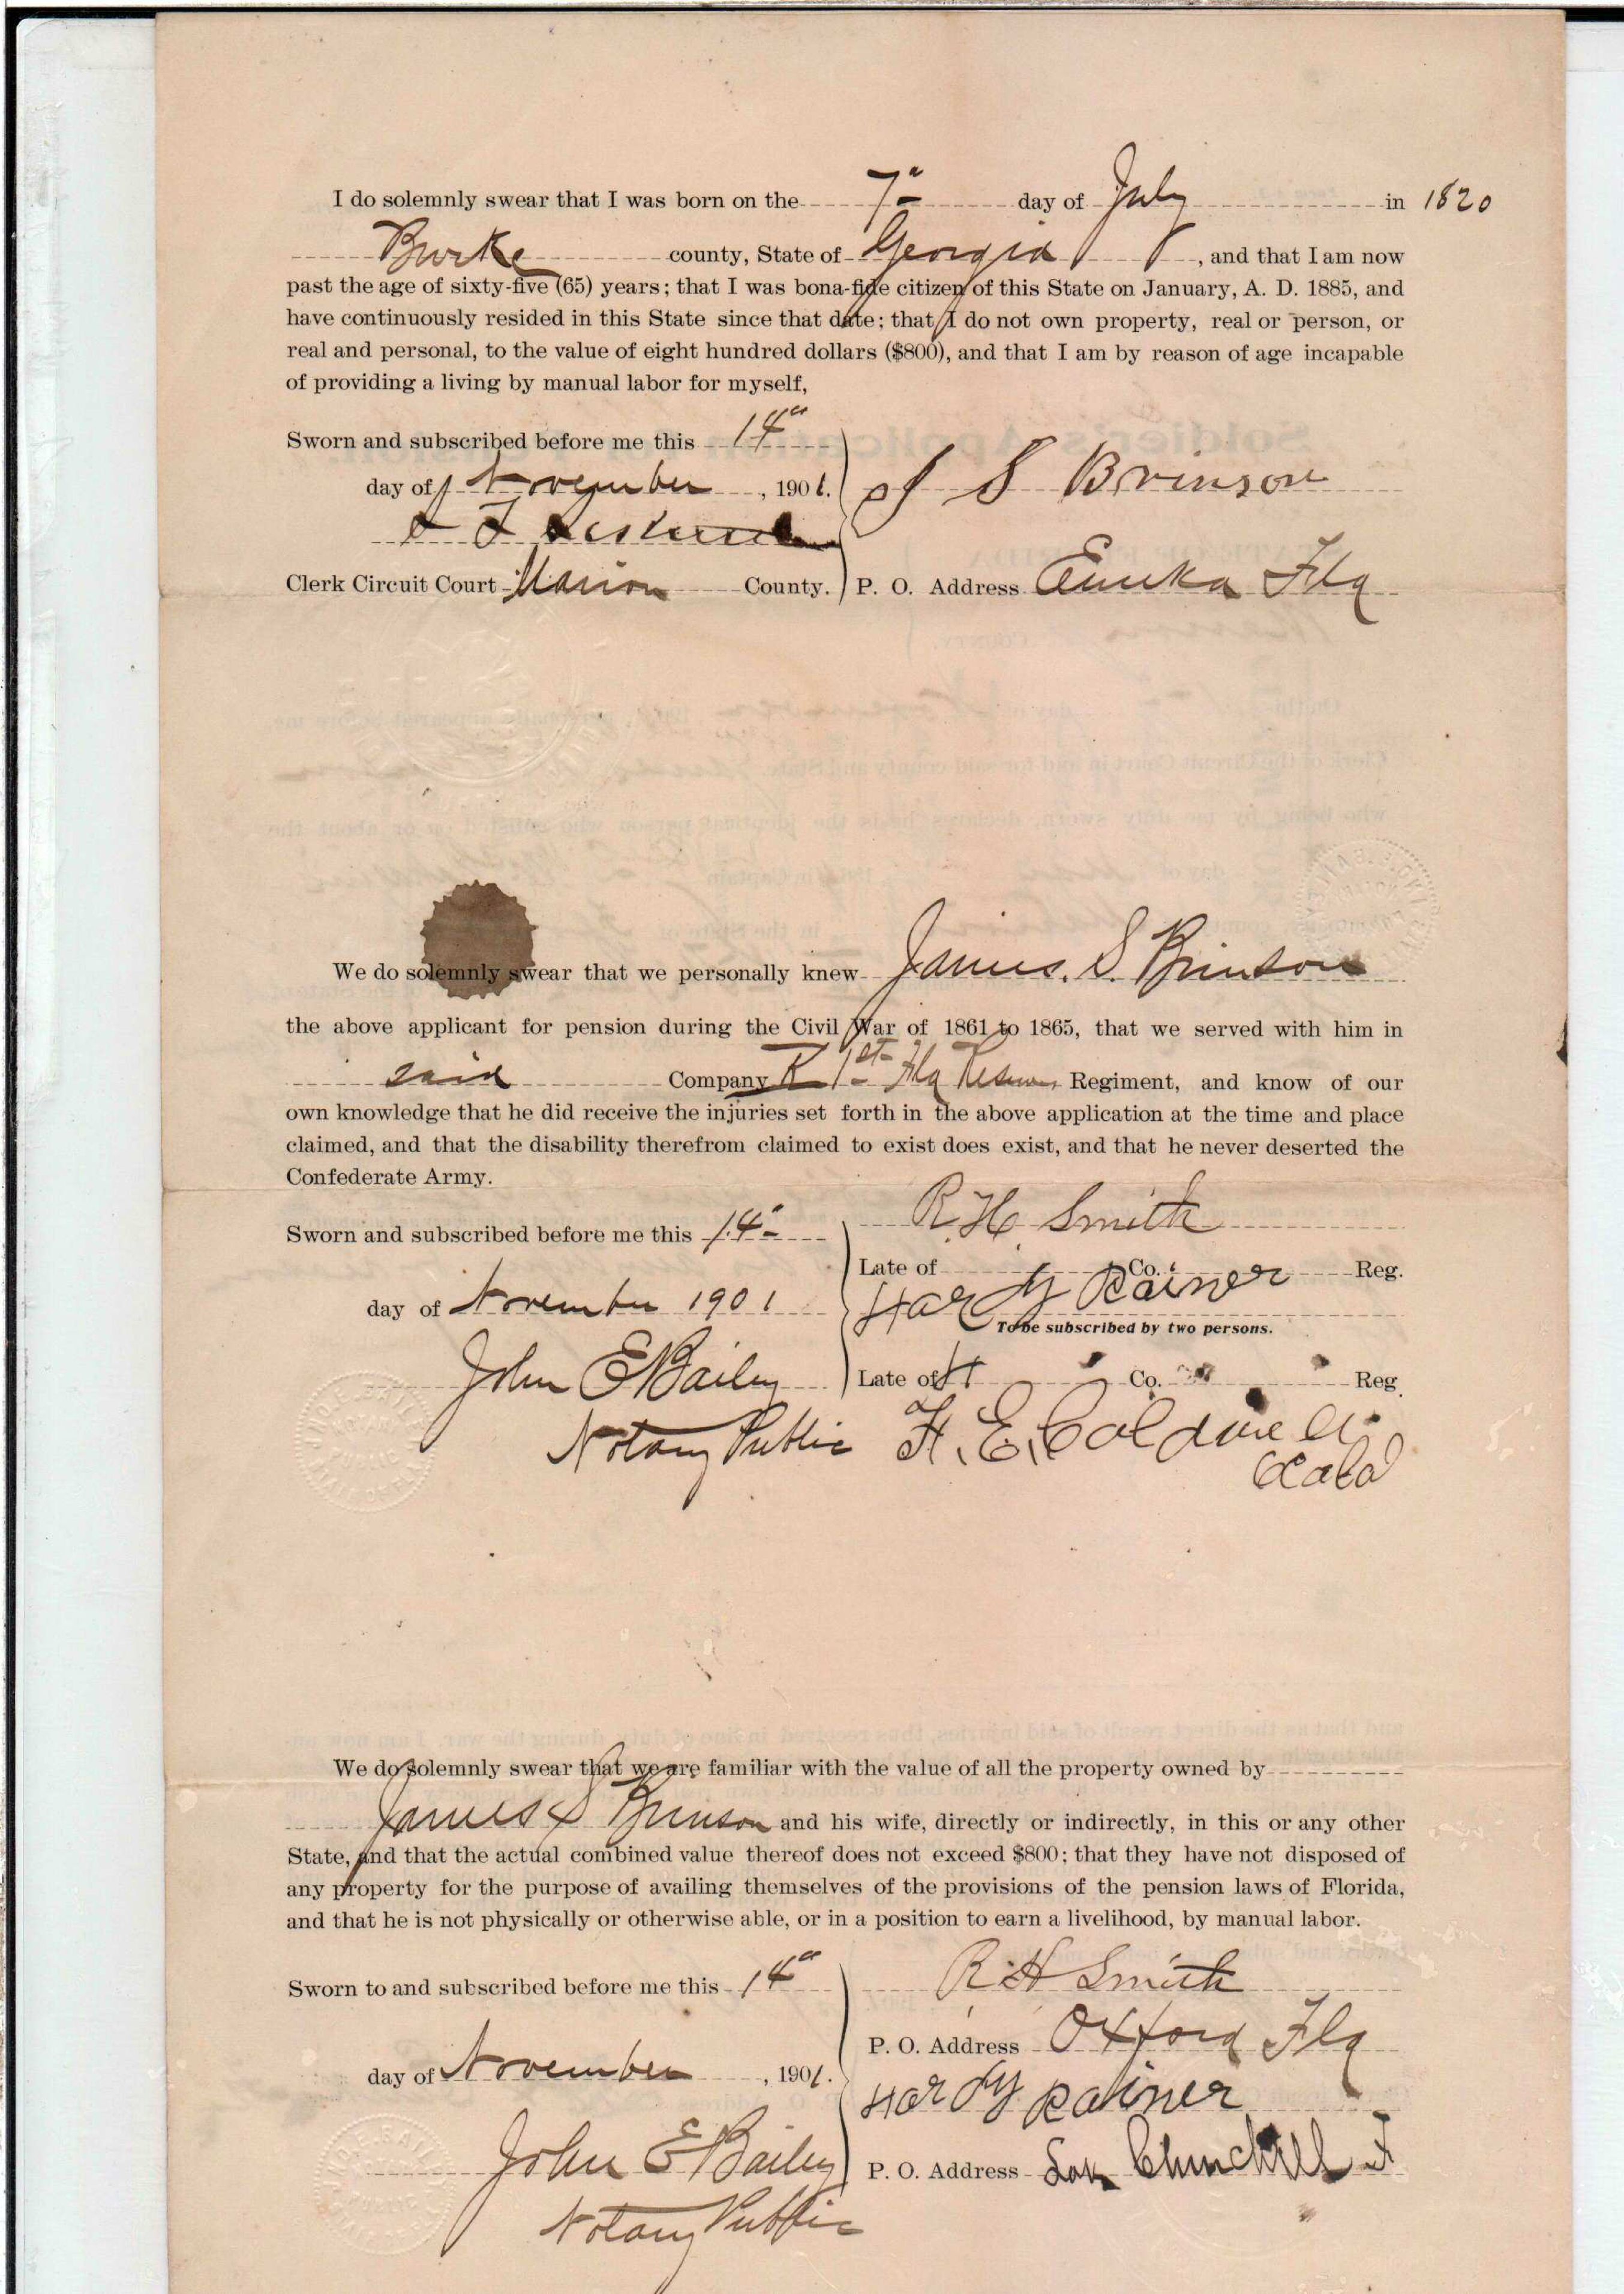 I do solemnly swear that I was born on the 7" day of July in 1820
Burke county, State of Georgia, and that I am now
past the age of sixty-five (65) years; that I was bona-fide citizen of this State on January, A. D. 1885, and
have continuously resided in this State since that date; that I do not own property, real or person, or
real and personal, to the value of eight hundred dollars ($800), and that I am by reason of age incapable
of providing a living by manual labor for myself,
Sworn and subscribed before me this 14"
day of November, 1901. J S Brinson
Clerk Circuit Court Marion County. P. O. Address Eureka Fla
We do solemnly swear that we personally knew James. S. Brinson
the above applicant for pension during the Civil War of 1861 to 1865, that we served with him in
said Company K 1st Fla Reserves Regiment, and know of our
own knowledge that he did receive the injuries set forth in the above application at the time and place
claimed, and that the disability therefrom claimed to exist does exist, and that he never deserted the
Confederate Army.
Sworn and subscribed before me this 14" R. H. Smith
Late of Co. Reg.
day of November 1901 Hardy Rainer
To be subscribed by two persons.
John E Bailey Late of Co. Reg.
Notary Public H. E. Coldwell
Ocala
We do solemnly swear that we are familiar with the value of all the property owned by
James S Brinson and his wife, directly or indirectly, in this or any other
State, and that the actual combined value thereof does not exceed $800; that they have not disposed of
any property for the purpose of availing themselves of the provisions of the pension laws of Florida,
and that he is not physically or otherwise able, or in a position to earn a livelihood, by manual labor.
Sworn to and subscribed before me this 14" R H Smith
P. O. Address Oxford Fla
day of November, 1901. Hardy Rainer
John E Bailey P. O. Address
Notary Public